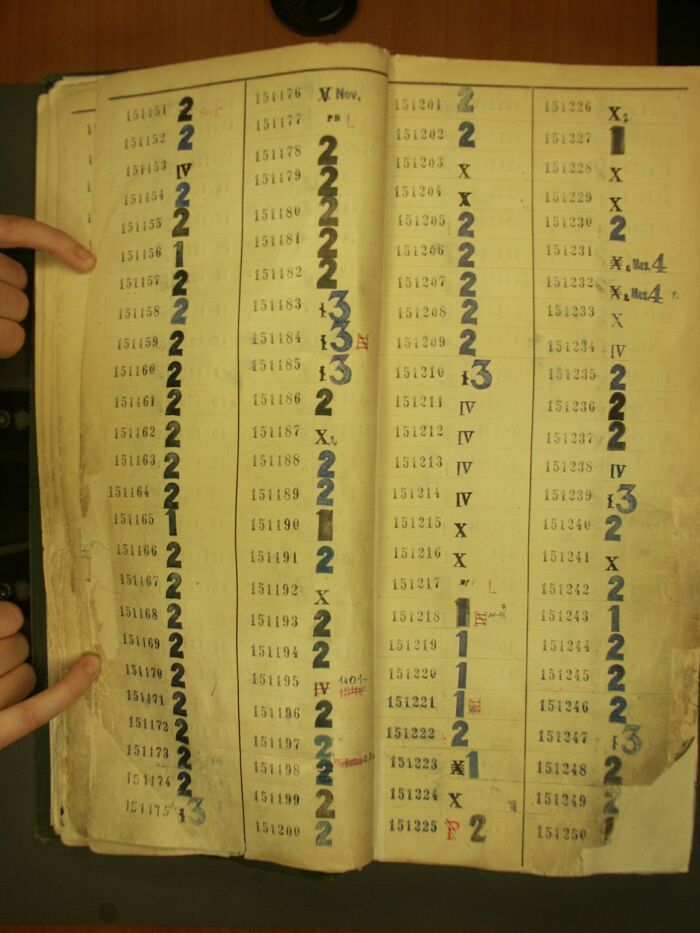 151151 2
151152 2
151153 IV
151154 2
151155 2
151156 1
151157 2
151158 2
151159 2
151160 2
151161 2
151162 2
151163 2
151164 2
151165 1
151166 2
151167 2
151168 2
151169 2
151170 2
151171 2
151172 2
151173 2
151174 2
151175 I 3
151176 V Nov.
151177 PB L
151178 2
151179 2
151180 2
151181 2
151182 2
151183 I 3
151184 I 3 IX
151185 I 3
151186 2
151187 X2
151188 2
151189 2
151190 1
151191 2
151192 X
151193 2
151194 2
151195 IV 1401-
151196 2
151197 2
151198 2
151199 2
151200 2
151201 2
151202 2
151203 X
151204 X
151205 2
151206 2
151207 2
151208 2
151209 2
151210 I 3
151211 IV
151212 IV
151213 IV
151214 IV
151215 X
151216 X
151217 L
151218 1
151219 1
151220 1
151221 1
151222 2
151223 X 1
151224 X
151225 P 2
151226 X2
151227 1
151228 X
151229 X
151230 2
151231 X 2 Maz. 4
151232 X 2 Maz. 4
151233 X
151234 IV
151235 2
151236 2
151237 2
151238 IV
151239 I 3
151240 2
151241 X
151242 2
151243 1
151244 2
151245 2
151246 2
151247 I 3
151248 2
151249 2
151250 1